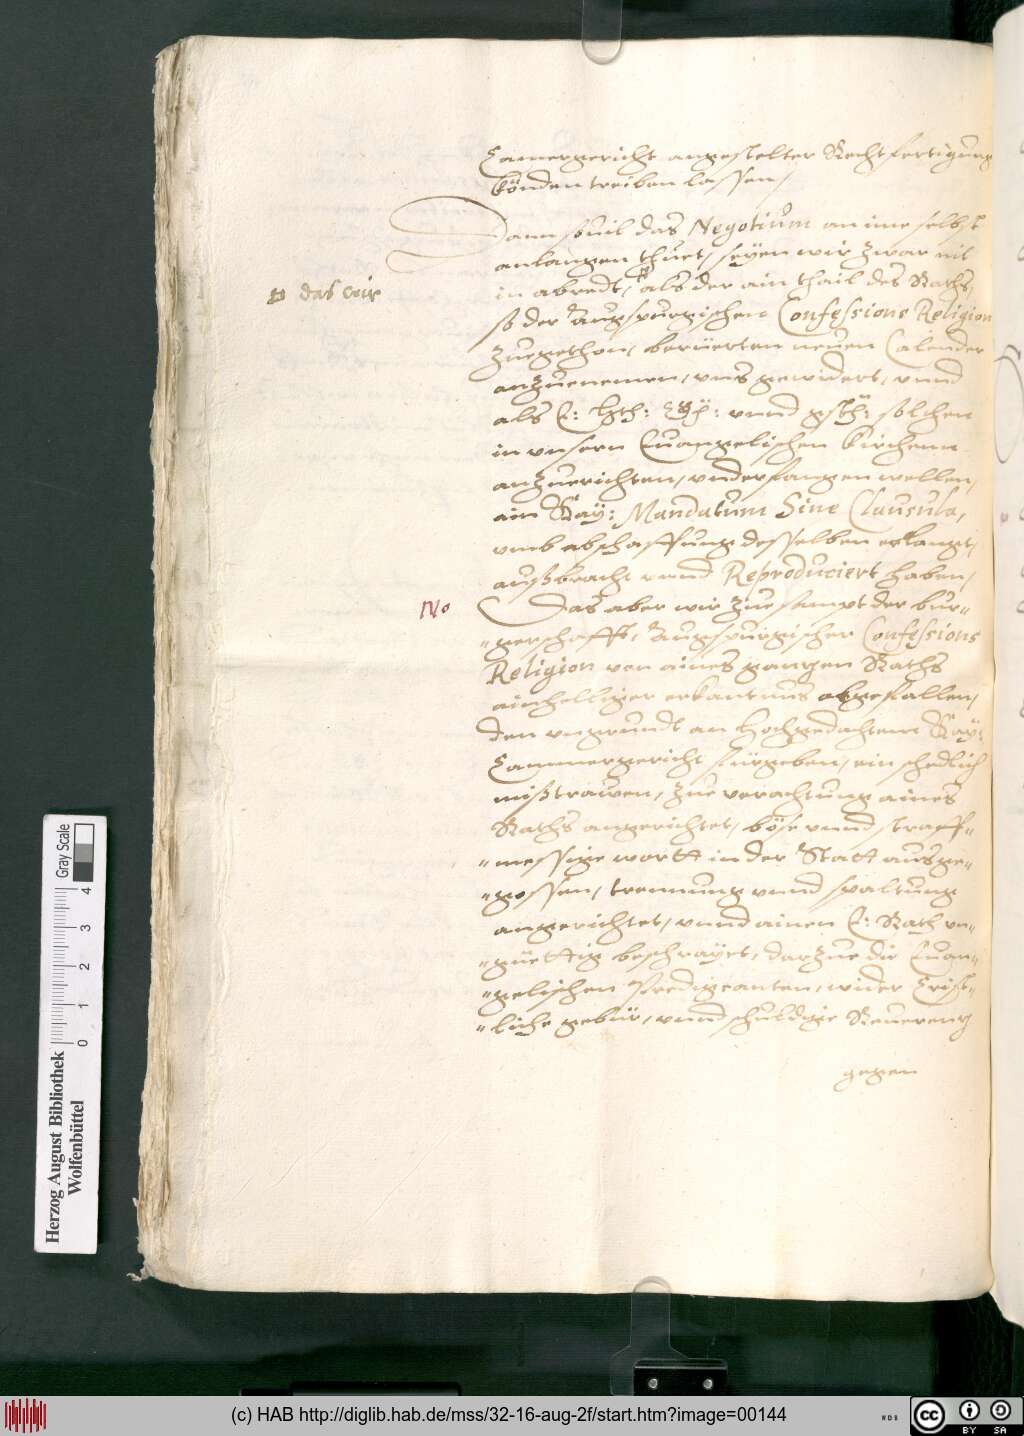 Camergericht angestelter Rechtfertigung
könden treiben lassen,
Dann souil das Negotium an ime selbst
anlangen thuet, seyen wir zwar nit
in abredt, als der ain thail des Raths,
das wir
so der Augspurgischen Confessions Religion
zuegethon, berüerten neuen Calender
anzuenemen, vns gewidert, vnnd
als E: vnnd solchen
in vnsern Euangelischen Kirchenn
anzuerichten, vnderfangen wellen,
ain Kay: Mandatum Sine Clausula,
vmb abschaffung desselben erlangt,
außbracht vnnd Reproduciert haben,
No
Das aber wir zue sampt der bur-
-gerschafft, Augspurgischer Confessions
Religion von aines gantzen Raths
ainhelliger erkantnus abgefallen,
den vngrundt an Hochgedachtem Kay:
Cammergericht fürgeben, ein schedlich
mißtrawen, zue verachtung aines
Raths angerichtet, böse vnnd straff-
-messige wortt in der Statt ausge-
-gossen, trennung vnnd spaltung
angerichtet, vnnd ainen E: Rath vn-
-güettig beschrayet, darzue die Euan-
-gelischen Predigcanten, wider Crist-
-liche gebür, vnnd schuldige Reuerentz
gegen
Herzog August Bibliothek
Wolfenbüttel
0 1 2 3 4
Gray Scale
(c) HAB http://diglib.hab.de/mss/32-16-aug-2f/start.htm?image=00144
WDB
cc
BY SA